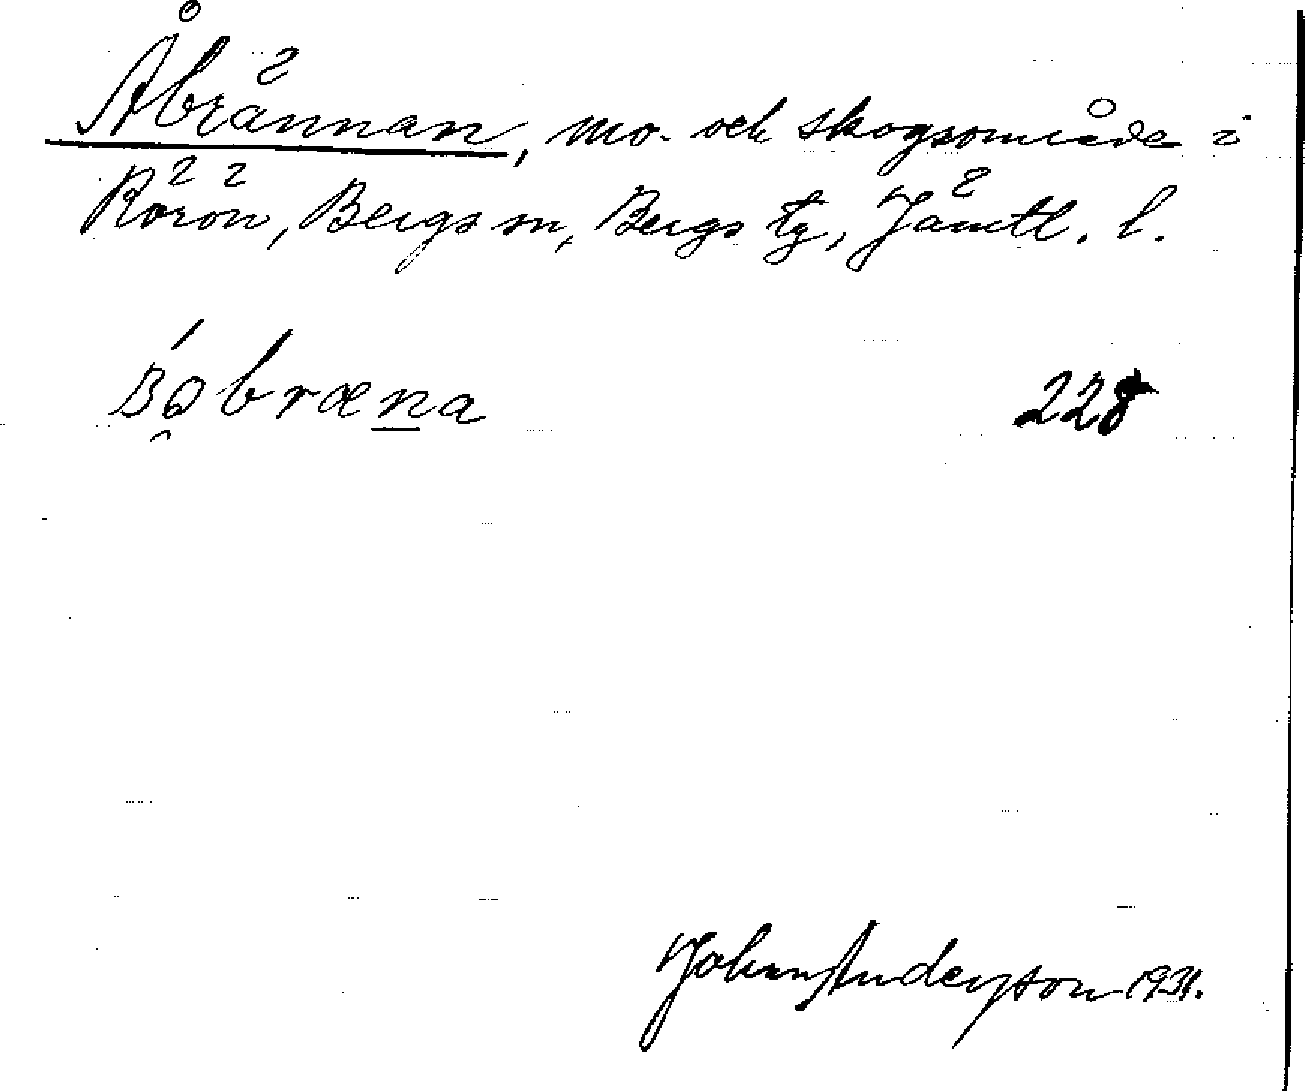 Åbrännan, mo- och skogsområde i
Rörön, Bergs sn, Bergs tg, Jämtl. l.
228
Johan Anderson 1931.